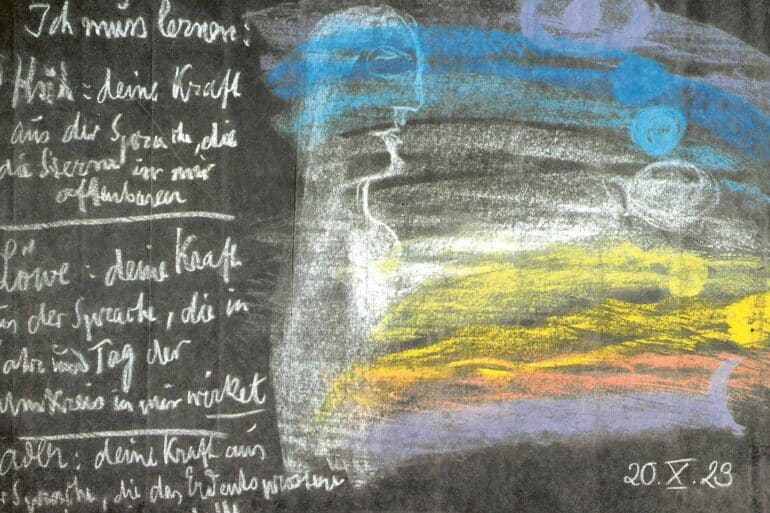 Ich muss lernen:
Kuh: deine Kraft
aus der Sprache, die
die Sterne in mir
offenbaren
Löwe: deine Kraft
us der Sprache, die in
ahr und Tag der
Umkreis in mir wirket
adler: deine Kraft aus
r Sprache, die das Erdentsprossene
20.X.23